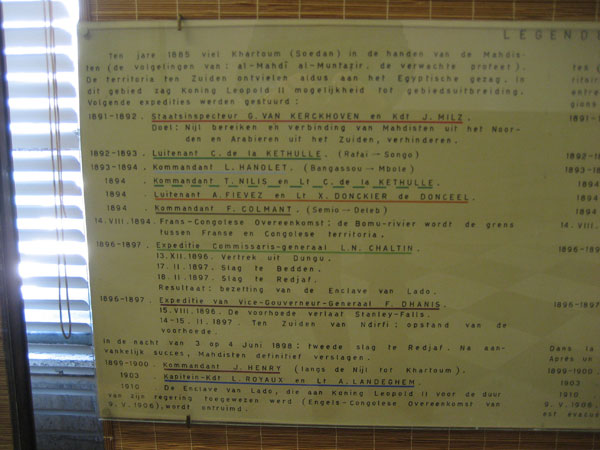 LEGENDE
Ten jare 1885 viel Khartoum (Soedan) in de handen van de Mahdis-
ten (de volgelingen van: al-Mahdî al-Muntazir, de verwachte profeet).
De territoria ten Zuiden ontvielen aldus aan het Egyptische gezag. In
dit gebied zag Koning Leopold II mogelijkheid tot gebiedsuitbreiding.
Volgende expedities werden gestuurd:
1891-1892. Staatsinspecteur G. VAN KERCKHOVEN en Kdt J. MILZ.
Doel: Nijl bereiken en verbinding van Mahdisten uit het Noor-
den en Arabieren uit het Zuiden, verhinderen.
1892-1893. Luitenant C. de la KETHULLE. (Rafaï → Songo)
1893-1894. Kommandant L. HANOLET. (Bangassou → Mbole)
1894. Kommandant T. NILIS en Lt C. de la KETHULLE.
1894. Luitenant A. FIEVEZ en Lt X. DONCKIER de DONCEEL.
1894. Kommandant F. COLMANT. (Semio → Deleb)
14.VIII.1894. Frans-Congolese Overeenkomst: de Bomu-rivier wordt de grens
tussen Franse en Congolese territoria.
1896-1897. Expeditie Commissaris-generaal L.N. CHALTIN.
13.XII.1896. Vertrek uit Dungu.
17.II.1897. Slag te Bedden.
18.II.1897. Slag te Redjaf.
Resultaat: bezetting van de Enclave van Lado.
1896-1897. Expeditie van Vice-Gouverneur-Generaal F. DHANIS.
15.VIII.1896. De voorhoede verlaat Stanley-Falls.
14-15.II.1897. Ten Zuiden van Ndirfi: opstand van de
voorhoede.
In de nacht van 3 op 4 Juni 1898: tweede slag te Redjaf. Na aan-
vankelijk succes, Mahdisten definitief verslagen.
1899-1900. Kommandant J. HENRY (langs de Nijl tot Khartoum).
1903. Kapitein-Kdt L. ROYAUX en Lt A. LANDEGHEM.
1910. De Enclave van Lado, die aan Koning Leopold II voor de duur
van zijn regering toegewezen werd (Engels-Congolese Overeenkomst van
9.V.1906), wordt ontruimd.
En
ten
De
rifair
entre
gions
1891-1
1892-18
1893-18
1894
1894
1894
14.VIII.
1896-189
1896-1897
Dans la
Après un
1899-1900
1903
1910
9.V.1906
est évacu